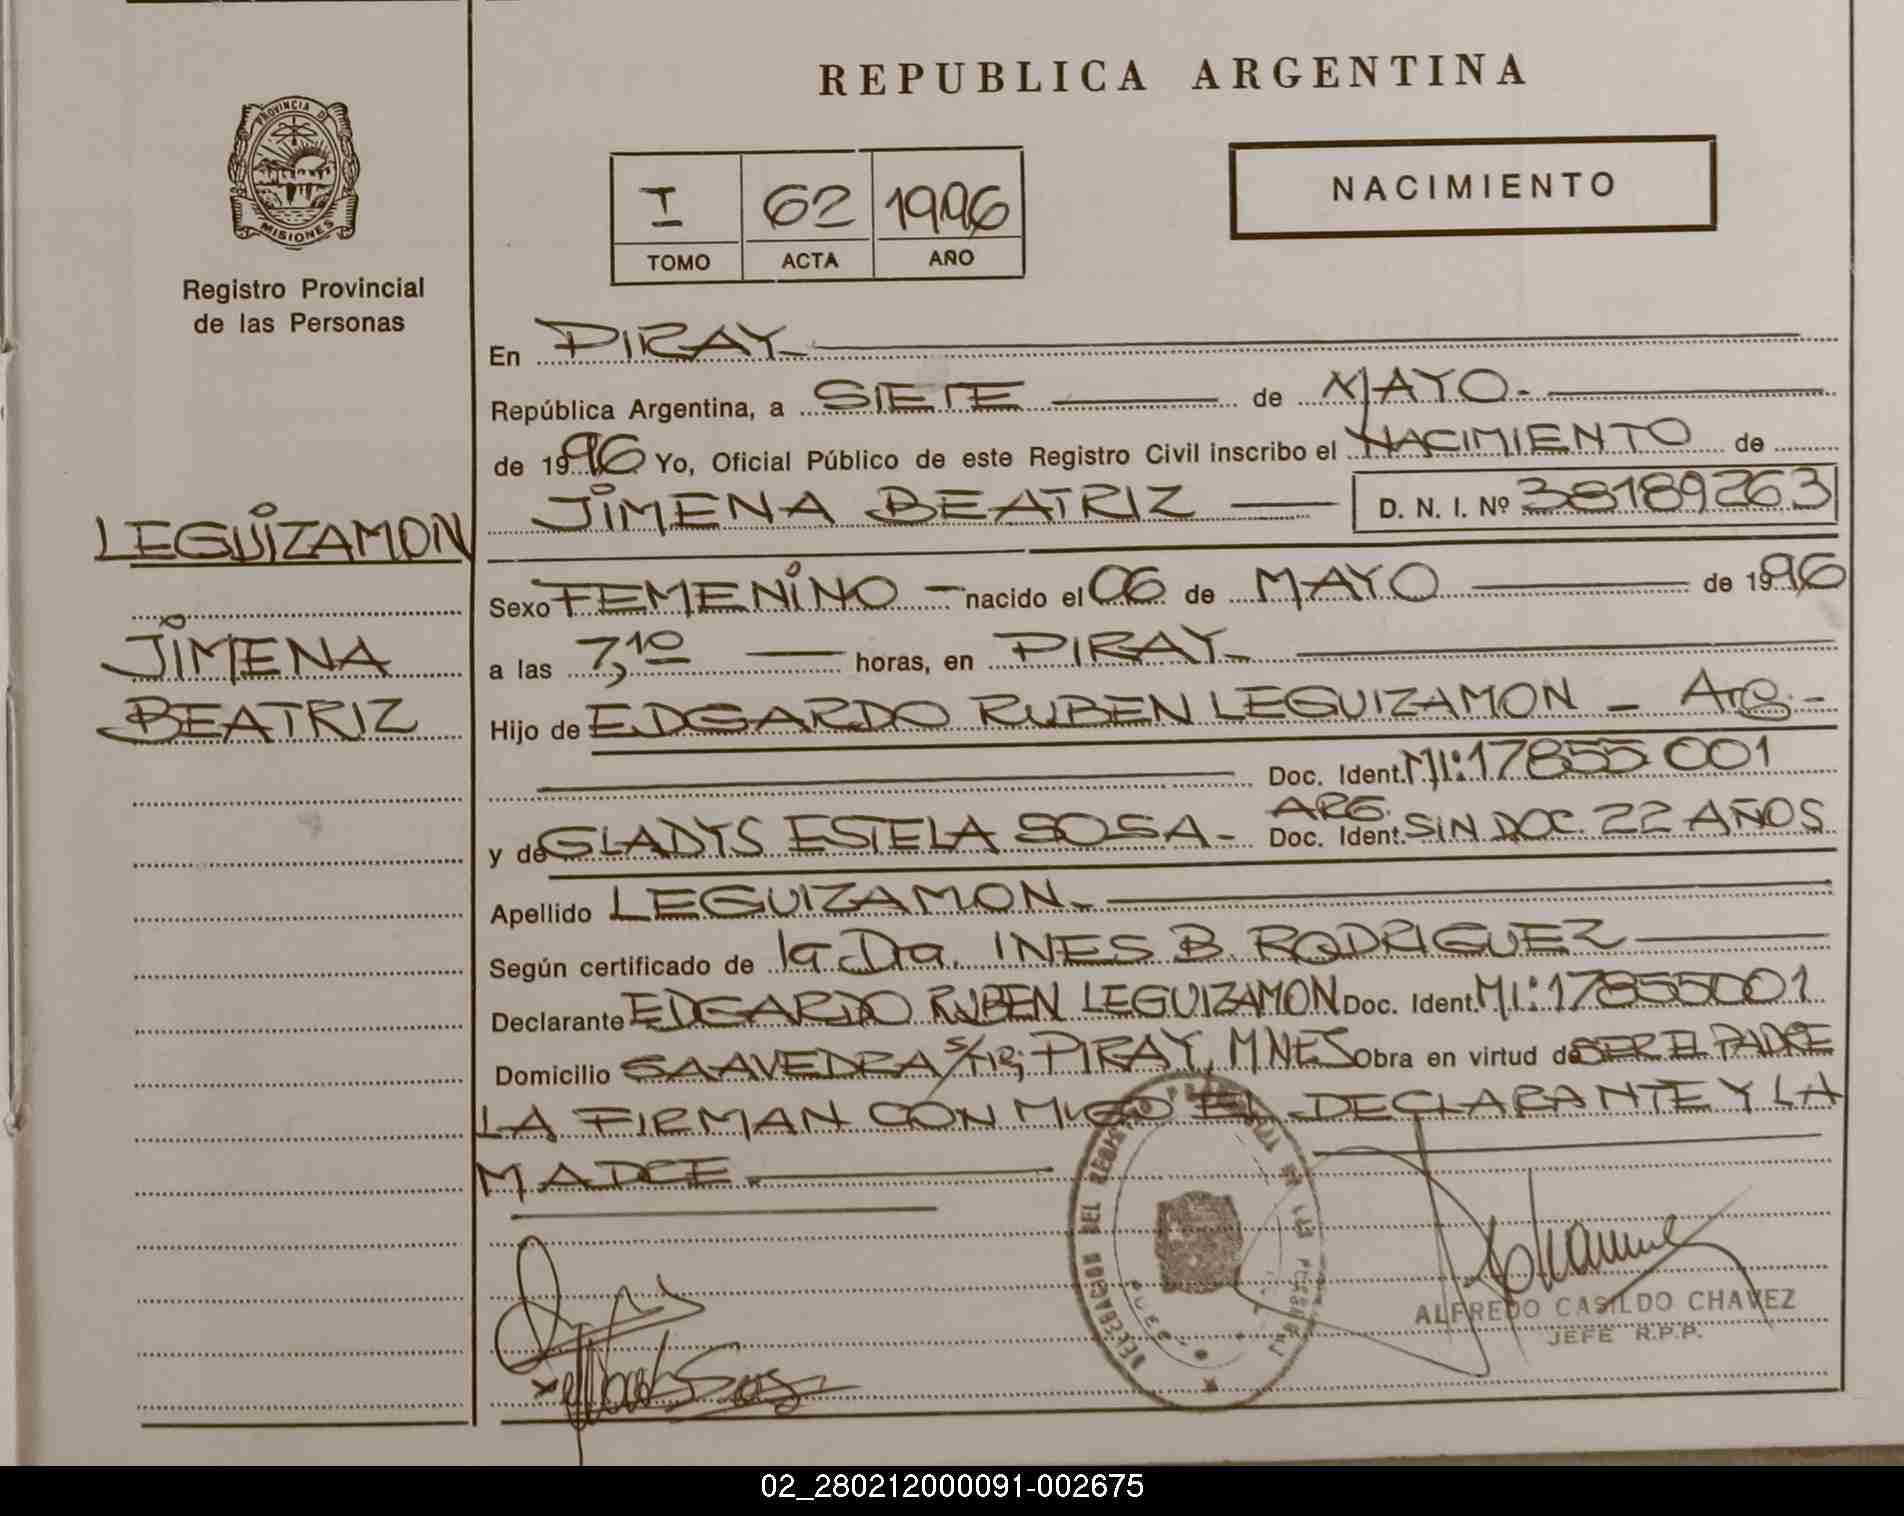 REPUBLICA ARGENTINA
PROVINCIA DE
MISIONES
Registro Provincial
de las Personas
I 62 1996
TOMO ACTA AÑO
NACIMIENTO
LEGUIZAMON
JIMENA
BEATRIZ
En PIRAY
República Argentina, a SIETE de MAYO.
de 1996 Yo, Oficial Público de este Registro Civil inscribo el NACIMIENTO de
JIMENA BEATRIZ D. N. I. Nº 38189263
Sexo FEMENINO - nacido el 06 de MAYO de 1996
a las 7,10 horas, en PIRAY
Hijo de EDGARDO RUBEN LEGUIZAMON - ARG. -
Doc. Ident. M.I: 17855001
y de GLADYS ESTELA SOSA - ARG. Doc. Ident. SIN DOC. 22 AÑOS
Apellido LEGUIZAMON
Según certificado de la Dra. INES B. RODRIGUEZ
Declarante EDGARDO RUBEN LEGUIZAMON Doc. Ident. M.I: 17855001
Domicilio SAAVEDRA PIRAY, MNES Obra en virtud de SER EL PADRE
LA FIRMAN CON MIGO EL DECLARANTE Y LA
MADRE
ALFREDO CASILDO CHAVEZ
JEFE R.P.P.
02_280212000091-002675